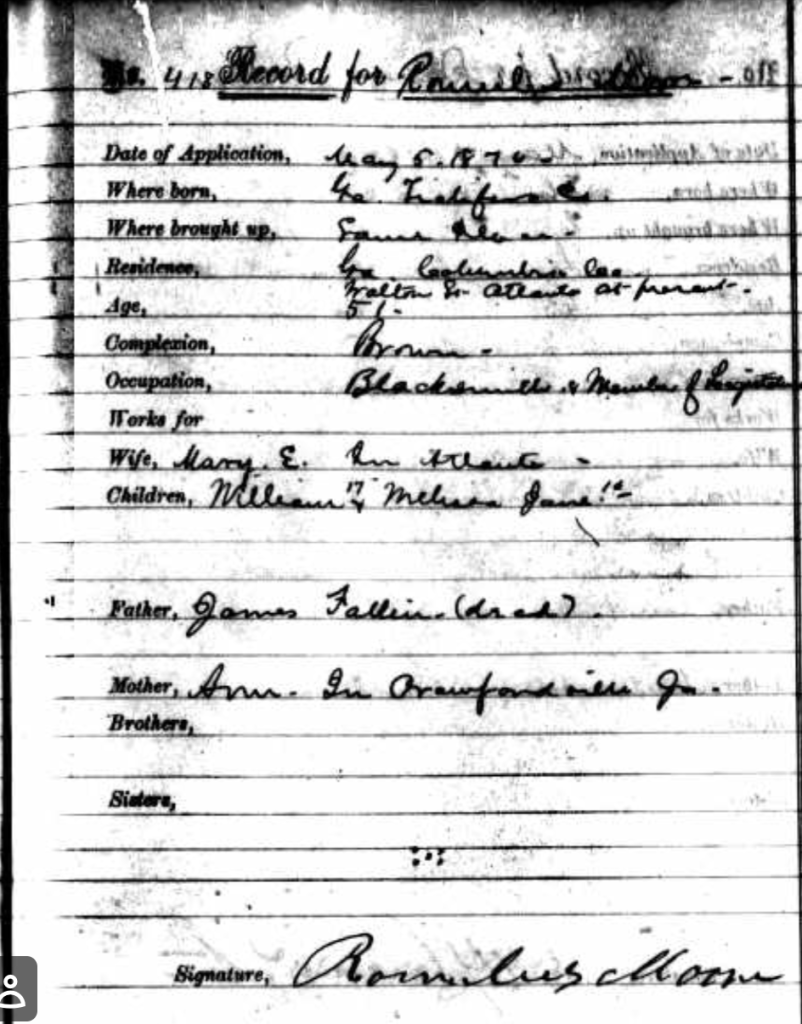 No. 418 Record for Romulus Moore -
Date of Application, May 5. 1870 -
Where born, Ga. Taliferro Co.
Where brought up, Same place -
Residence, Ga. Columbia Co.
Walton St. Atlanta at present -
Age, 51 -
Complexion, Brown -
Occupation, Blacksmith & Member of Legislature
Works for
Wife, Mary. E. In Atlanta -
Children, William 17 & Melissa Jane
Father, James Fallin - (dead) -
Mother, Ann - In Crawfordville Ga -
Brothers,
Sisters,
Signature, Romulus Moore